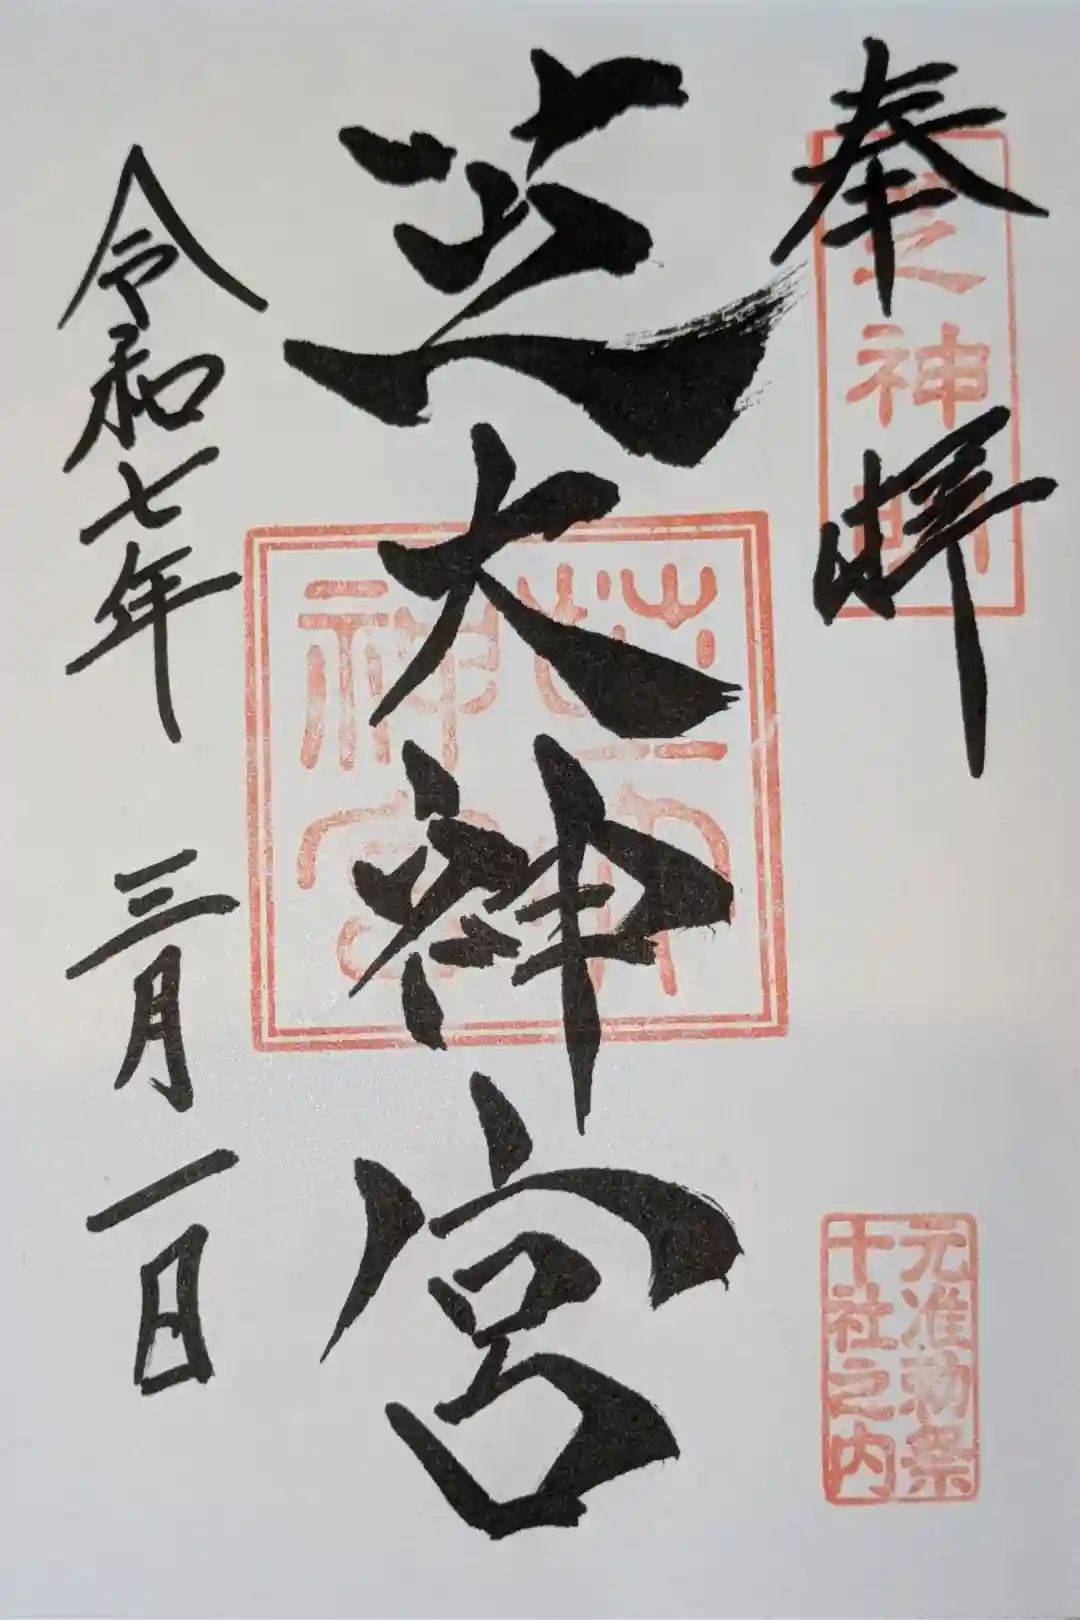 奉拝
芝神明
芝大神宮
芝大神宮
令和七年三月一日
元准勅祭
十社之内